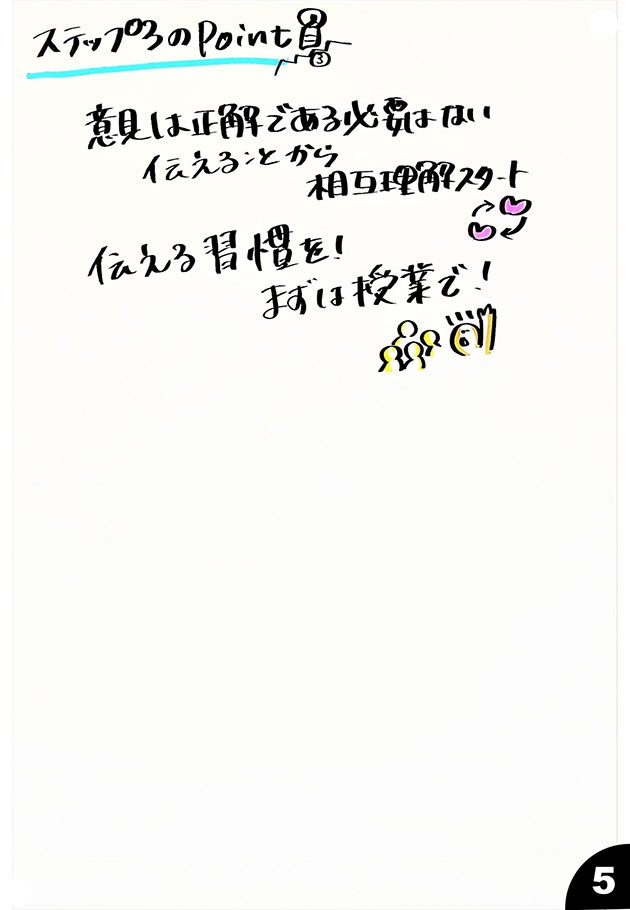 ステップ3のPoint
3
意見は正解である必要はない
伝えることから
相互理解スタート
伝える習慣を!
まずは授業で!
5